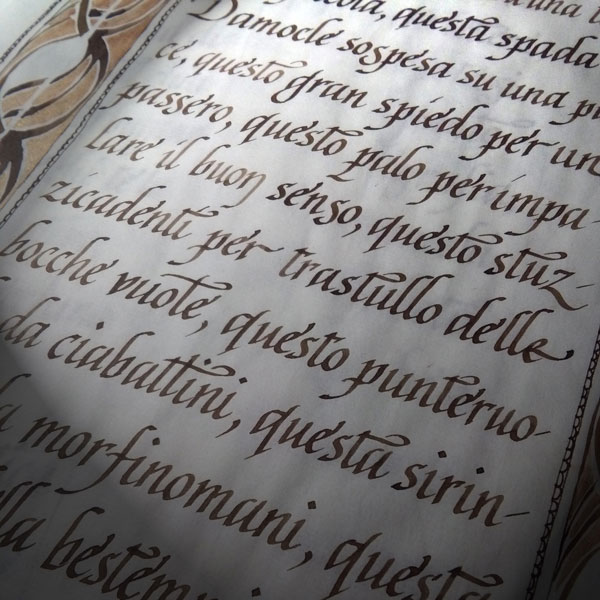 questa spada
Damocle sospesa su una pu
ce, questo gran spiedo per un
passero, questo palo per impa-
lare il buon senso, questo stuz-
zicadenti per trastullo delle
bocche vuote, questo punteruo-
da ciabattini, questa sirin-
morfinomani, questa